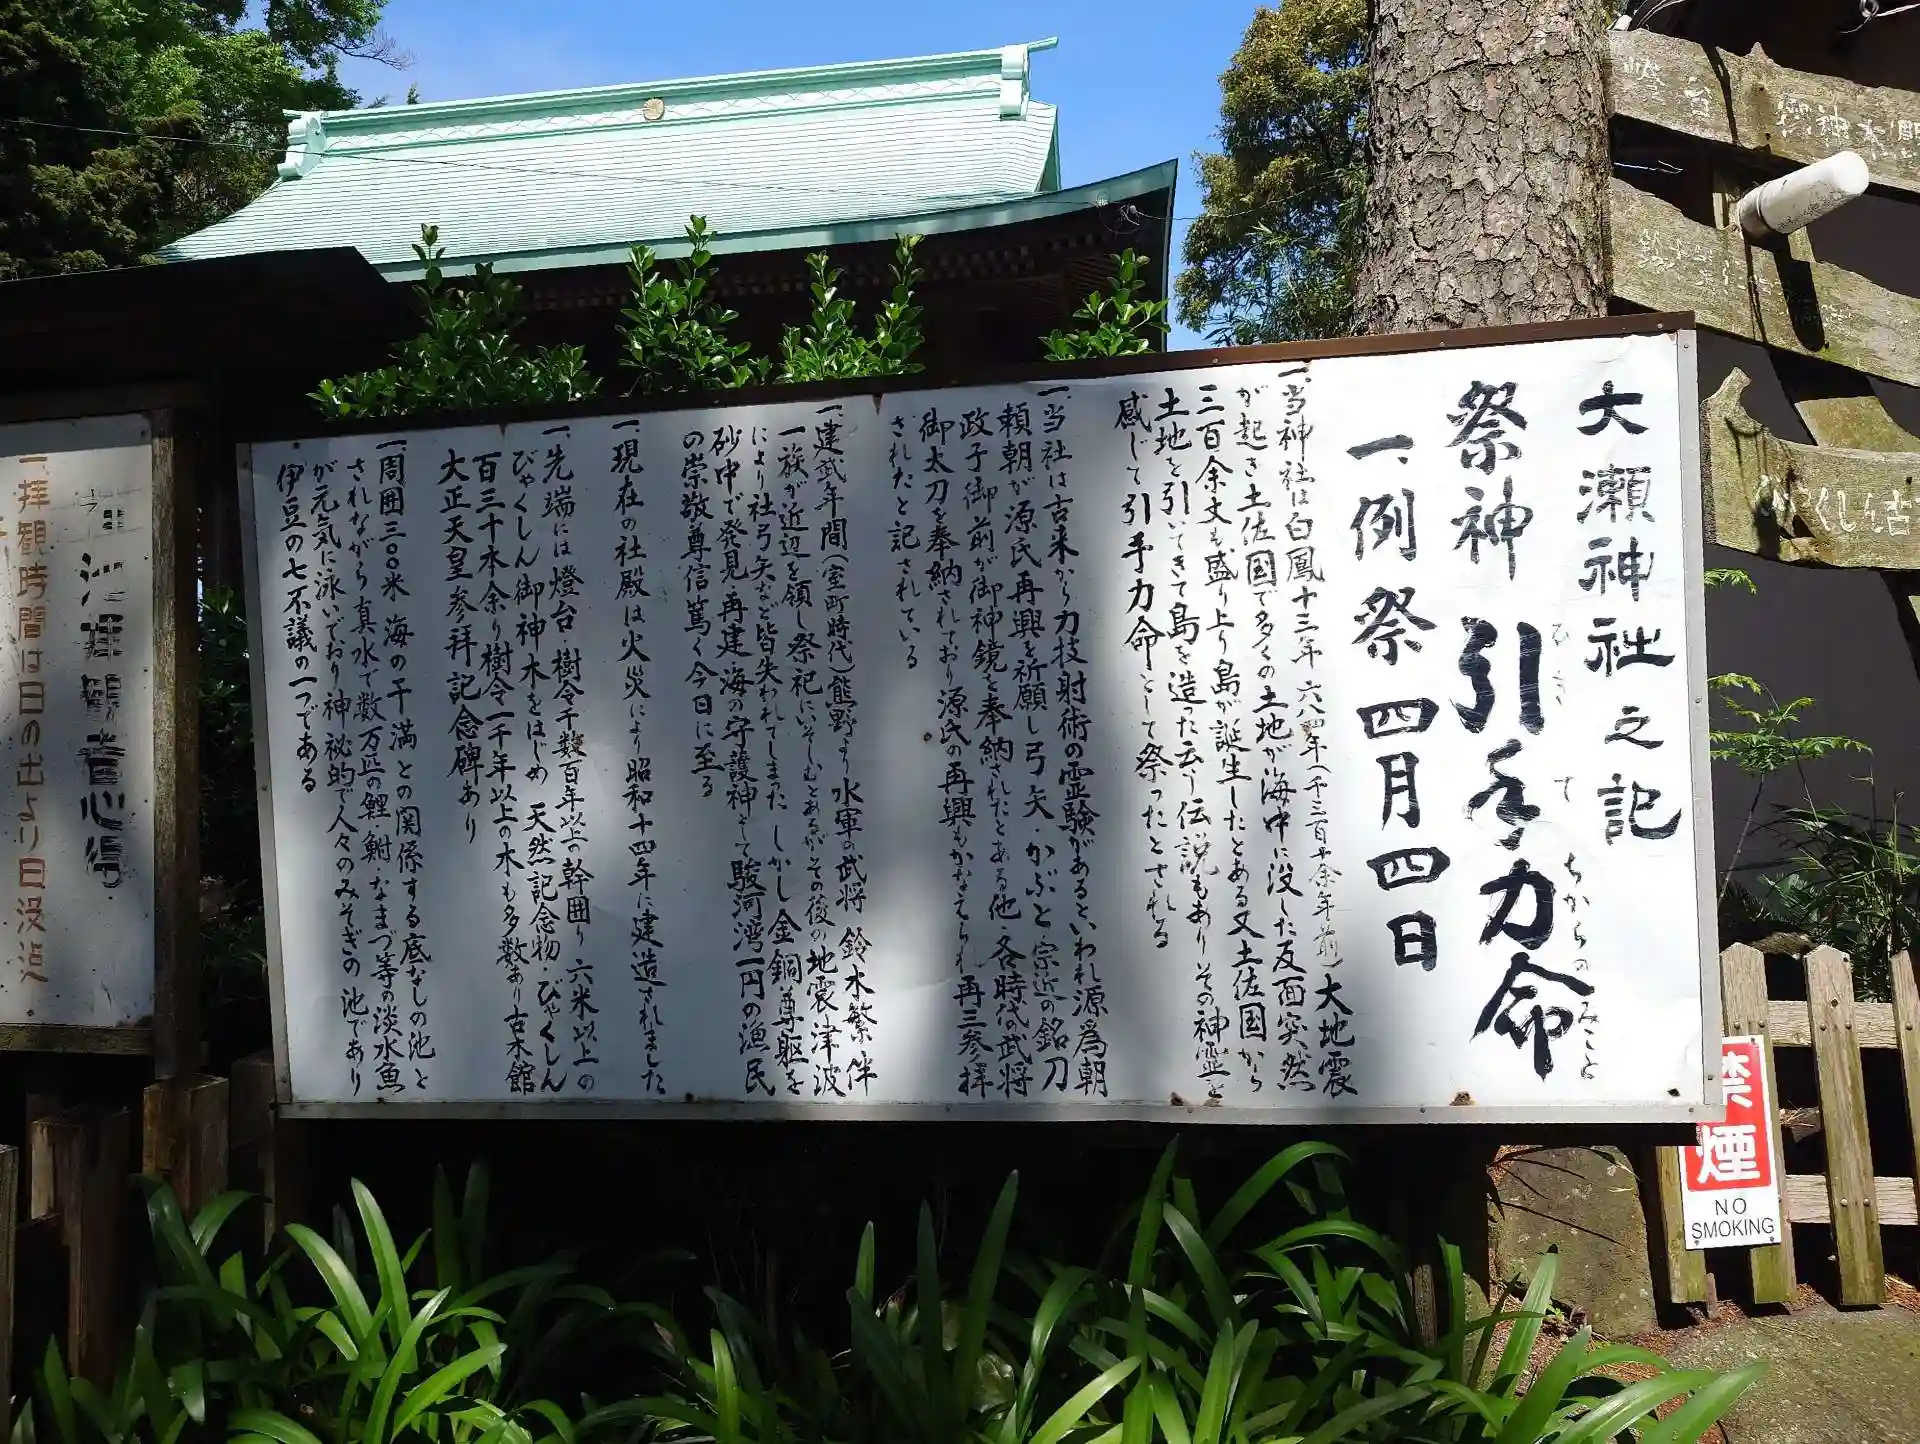 大瀬神社之記
祭神 引手力命
ひき て ちからのみこと
一、例祭 四月四日
一、当神社は白鳳十三年 六八四年(千三百余年前)大地震
が起き土佐国で多くの土地が海中に没した反面突然
三百余丈も盛り上り島が誕生したとある又土佐国から
土地を引いてきて島を造った云う伝説もありその神霊を
感じて引手力命として祭ったとされる
一、当社は古来から力技射術の霊験があるといわれ源為朝
頼朝が源氏再興を祈願し弓矢・かぶと・宗近の銘刀
政子御前が御神鏡を奉納されたとある他・各時代の武将
御太刀を奉納されており源氏の再興もかなえられ再三参拝
されたと記されている
一、建武年間(室町時代)熊野より水軍の武将 鈴木繁伴
一族が近辺を領し祭祀にいそしむとあるがその後の地震津波
により社弓矢など皆失われてしまった しかし金銅尊躯を
砂中で発見再建 海の守護神として駿河湾一円の漁民
の崇敬尊信篤く今日に至る
一、現在の社殿は火災により昭和十四年に建造されました
一、先端には燈台・樹令千数百年以上の幹囲り六米以上の
びゃくしん御神木をはじめ 天然記念物・びゃくしん
百三十本余り樹令一千年以上の木も多数あり古木館
大正天皇参拝記念碑あり
一、周囲三〇〇米 海の干満との関係する底なしの池と
されながら真水で数万匹の鯉・鮒・なまづ等の淡水魚
が元気に泳いでおり神秘的で人々のみそぎの池であり
伊豆の七不議の一つである
者心得
一、拝観時間は日の出より日没迄
御神木
びゃくしん古
禁煙
NO
SMOKING